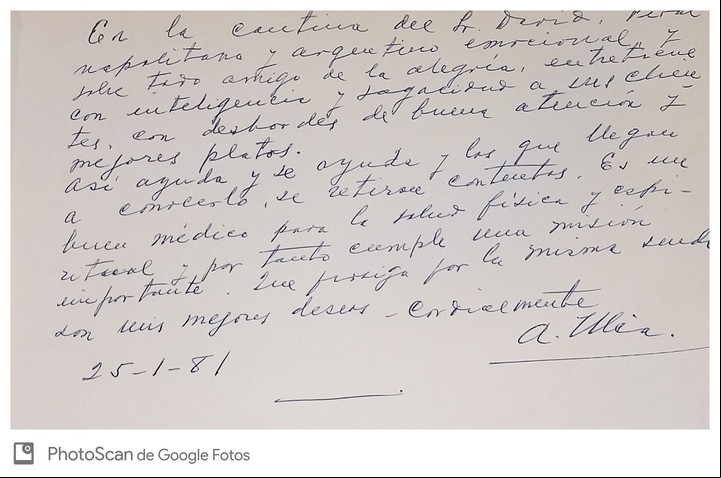 En la cantina del Sr. David,
napolitano y argentino emocional, y
sobre todo amigo de la alegría, entretiene
con inteligencia y sagacidad a sus clien
tes, con desbordes de buena atención y
mejores platos.
Así ayuda y se ayuda y los que llegan
a conocerlo, se retiran contentos. Es un
buen médico para la salud física y espi-
ritual y por tanto cumple una misión
importante. Que prosiga por la misma senda
son mis mejores deseos - Cordialmente
A.
25-1-81
PhotoScan de Google Fotos